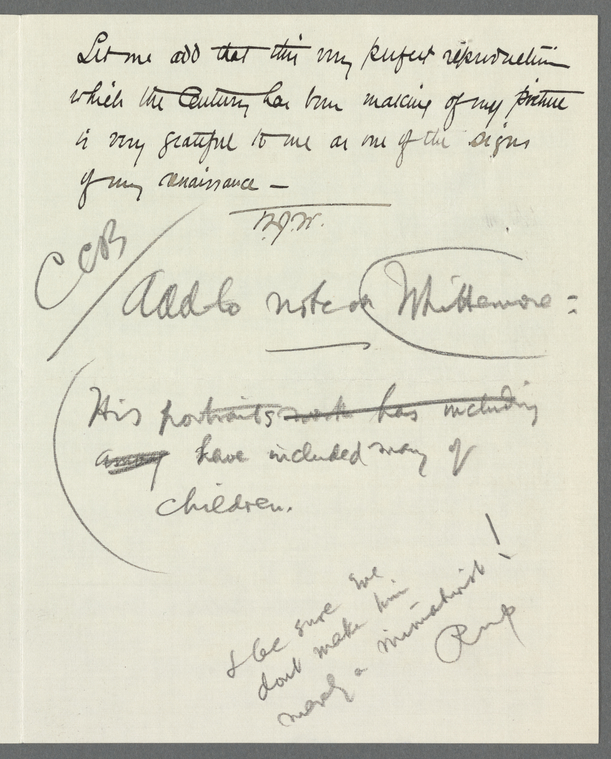 Let me add that this very perfect reproduction
which the Century has been making of my picture
is very grateful to me as one of the signs
of my renaissance —
W.J.W.
CCB
Add to note on Whittemore =
His portraits work has including
among have included many of
children.
& be sure we
dont make him
merely a miniaturist!